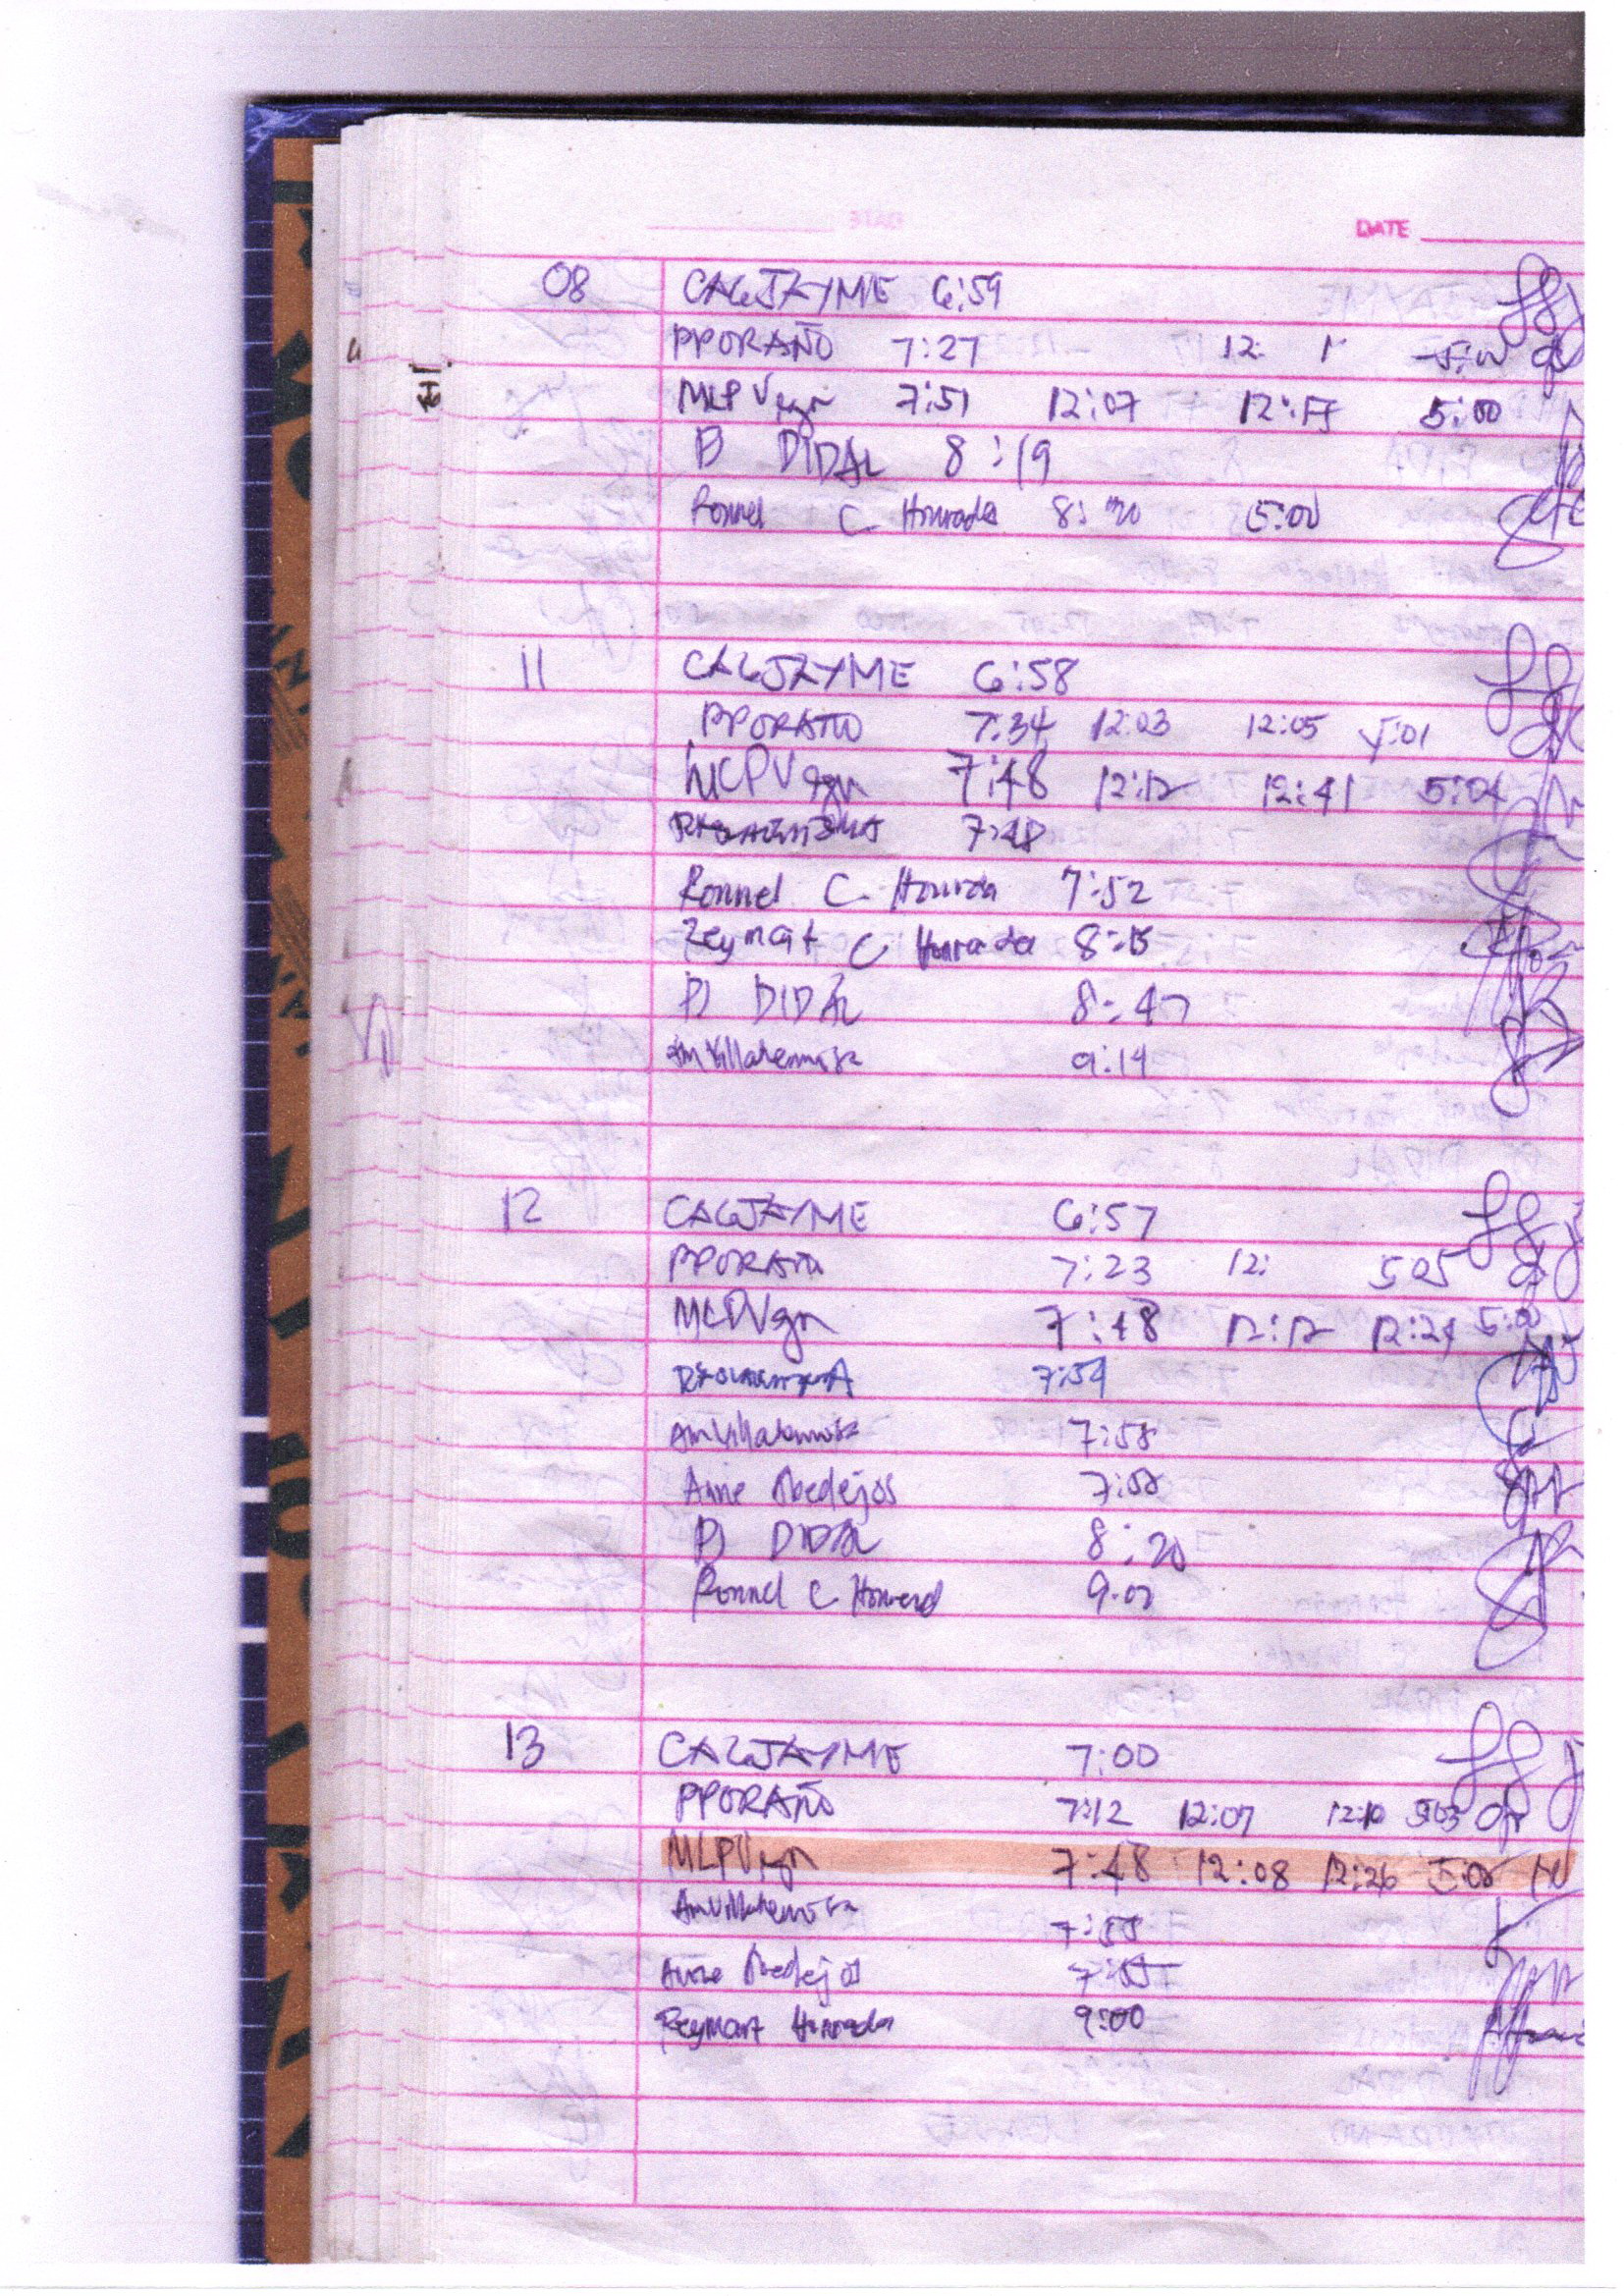 DATE
08 CAGJAYME 6:59
PPORAÑO 7:27 12: 1 5:00
MLPVgn 7:51 12:07 12:55 5:00
P DIDAL 8:19
Ronnel C. Honrada 8:20 5:00
11 CAGJAYME 6:58
PPORAÑO 7:34 12:03 12:05 5:01
MLPVgn 7:48 12:12 12:41 5:04
7:48
Ronnel C. Honrada 7:52
Reymart C Honrada 8:15
P DIDAL 8:47
AmVillahermosa 9:14
12 CAGJAYME 6:57
PPORAÑO 7:23 12: 505
MLPVgn 7:48 12:12 12:24 5:00
7:54
AmVillahermosa 7:58
Anne Abedejos 7:58
P DIDAL 8:20
Ronnel C Honrad 9:07
13 CAGJAYME 7:00
PPORAÑO 7:12 12:07 12:10 5:03
MLPVgn 7:48 12:08 12:26 5:00
AmVillahermosa 7:55
Anne Abedejos 7:55
Reymart Honrada 9:00